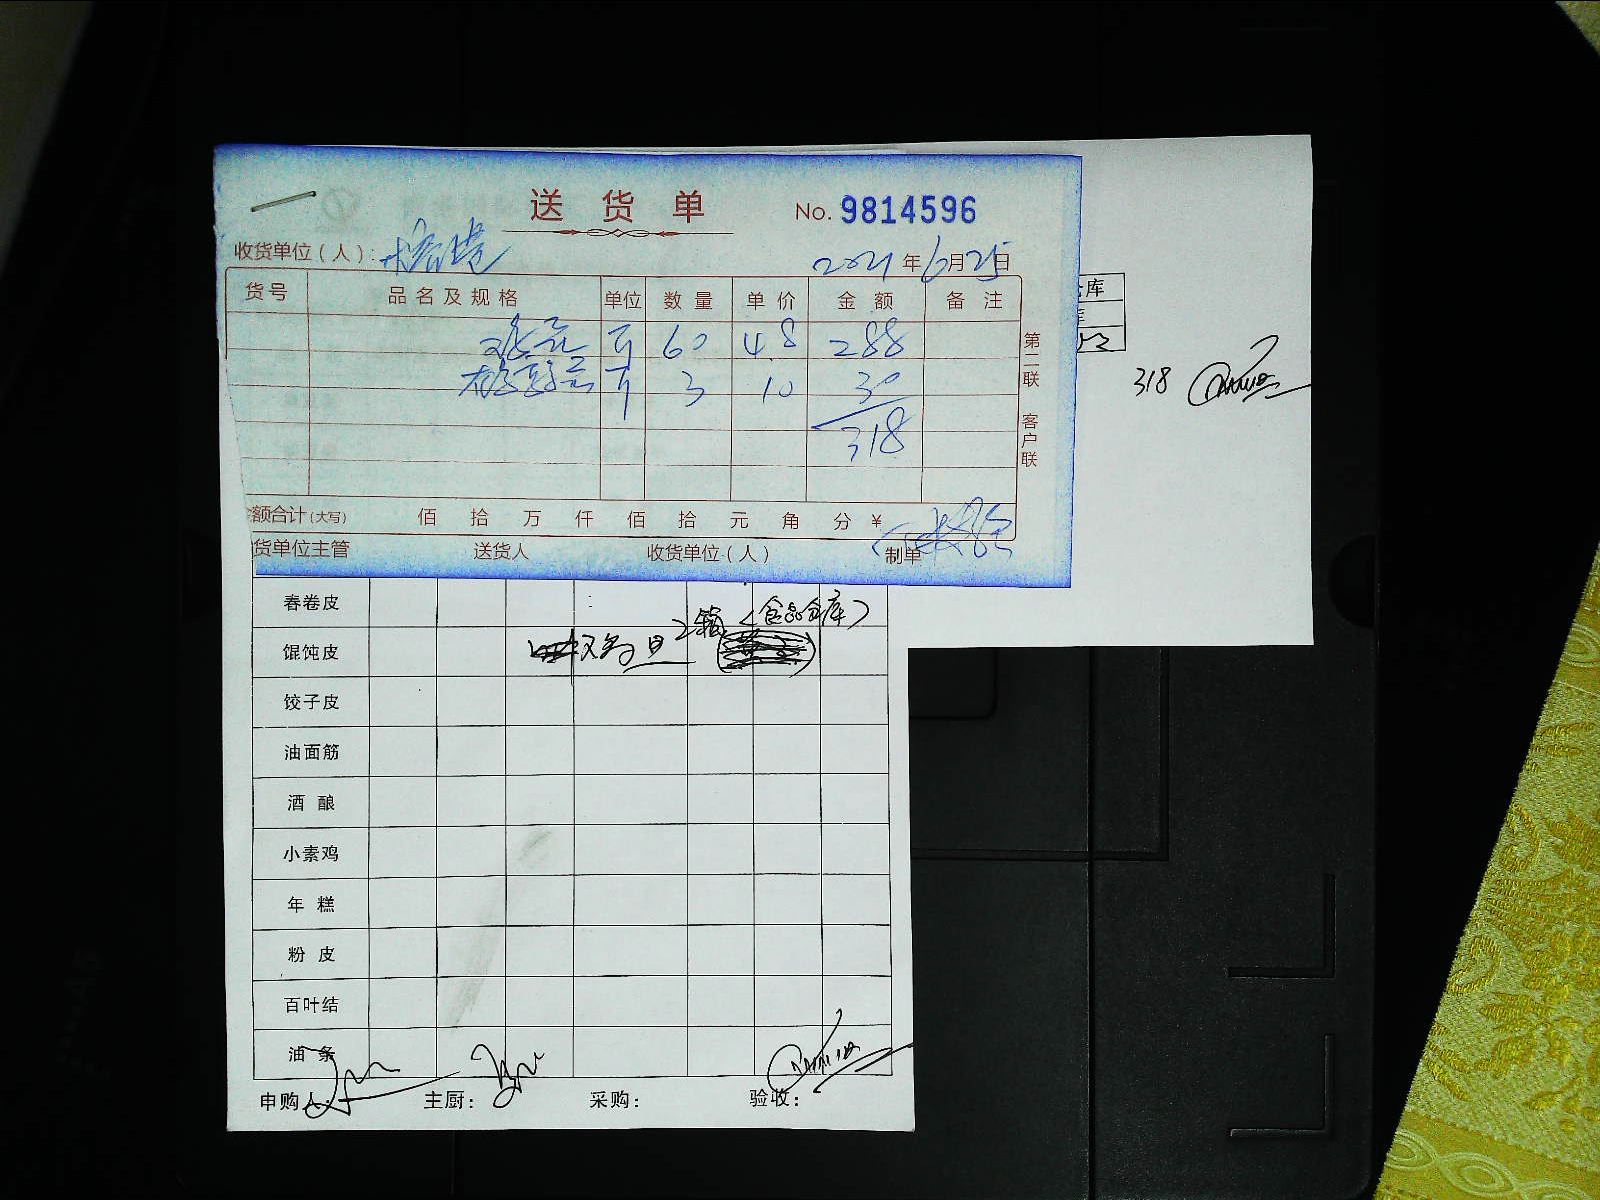 送货单 No. 9814596
收货单位(人): 2021年6月25日
货号 品名及规格 单位 数量 单价 金额 备注
斤 60 4.8 288
斤 3 10 30
318
第二联 客户联
额合计(大写) 佰 拾 万 仟 佰 拾 元 角 分 ¥
货单位主管 送货人 收货单位(人) 制单
库
318
春卷皮
2箱(食品仓库)
馄饨皮 鸡旦
饺子皮
油面筋
酒酿
小素鸡
年糕
粉皮
百叶结
油条
申购人: 主厨: 采购: 验收: